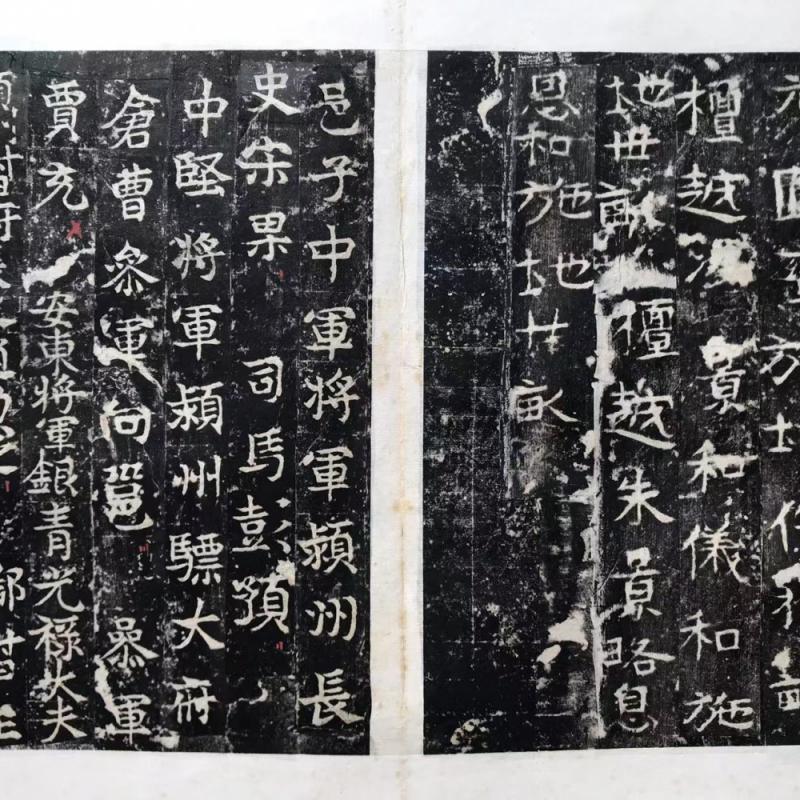 檀越景和儀和施
地廿畝檀越朱景略息
恩和施地廿畝
邑子中軍將軍潁州長
史宋果 司馬彭頴
中堅將軍潁州驃大府
倉曹參軍向邕 參軍
賈充 安東將軍銀青光祿大夫